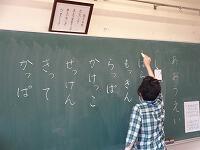 あおうえい
もっきん
らっぱ
かけっこ
せっけん
きって
かっぱ